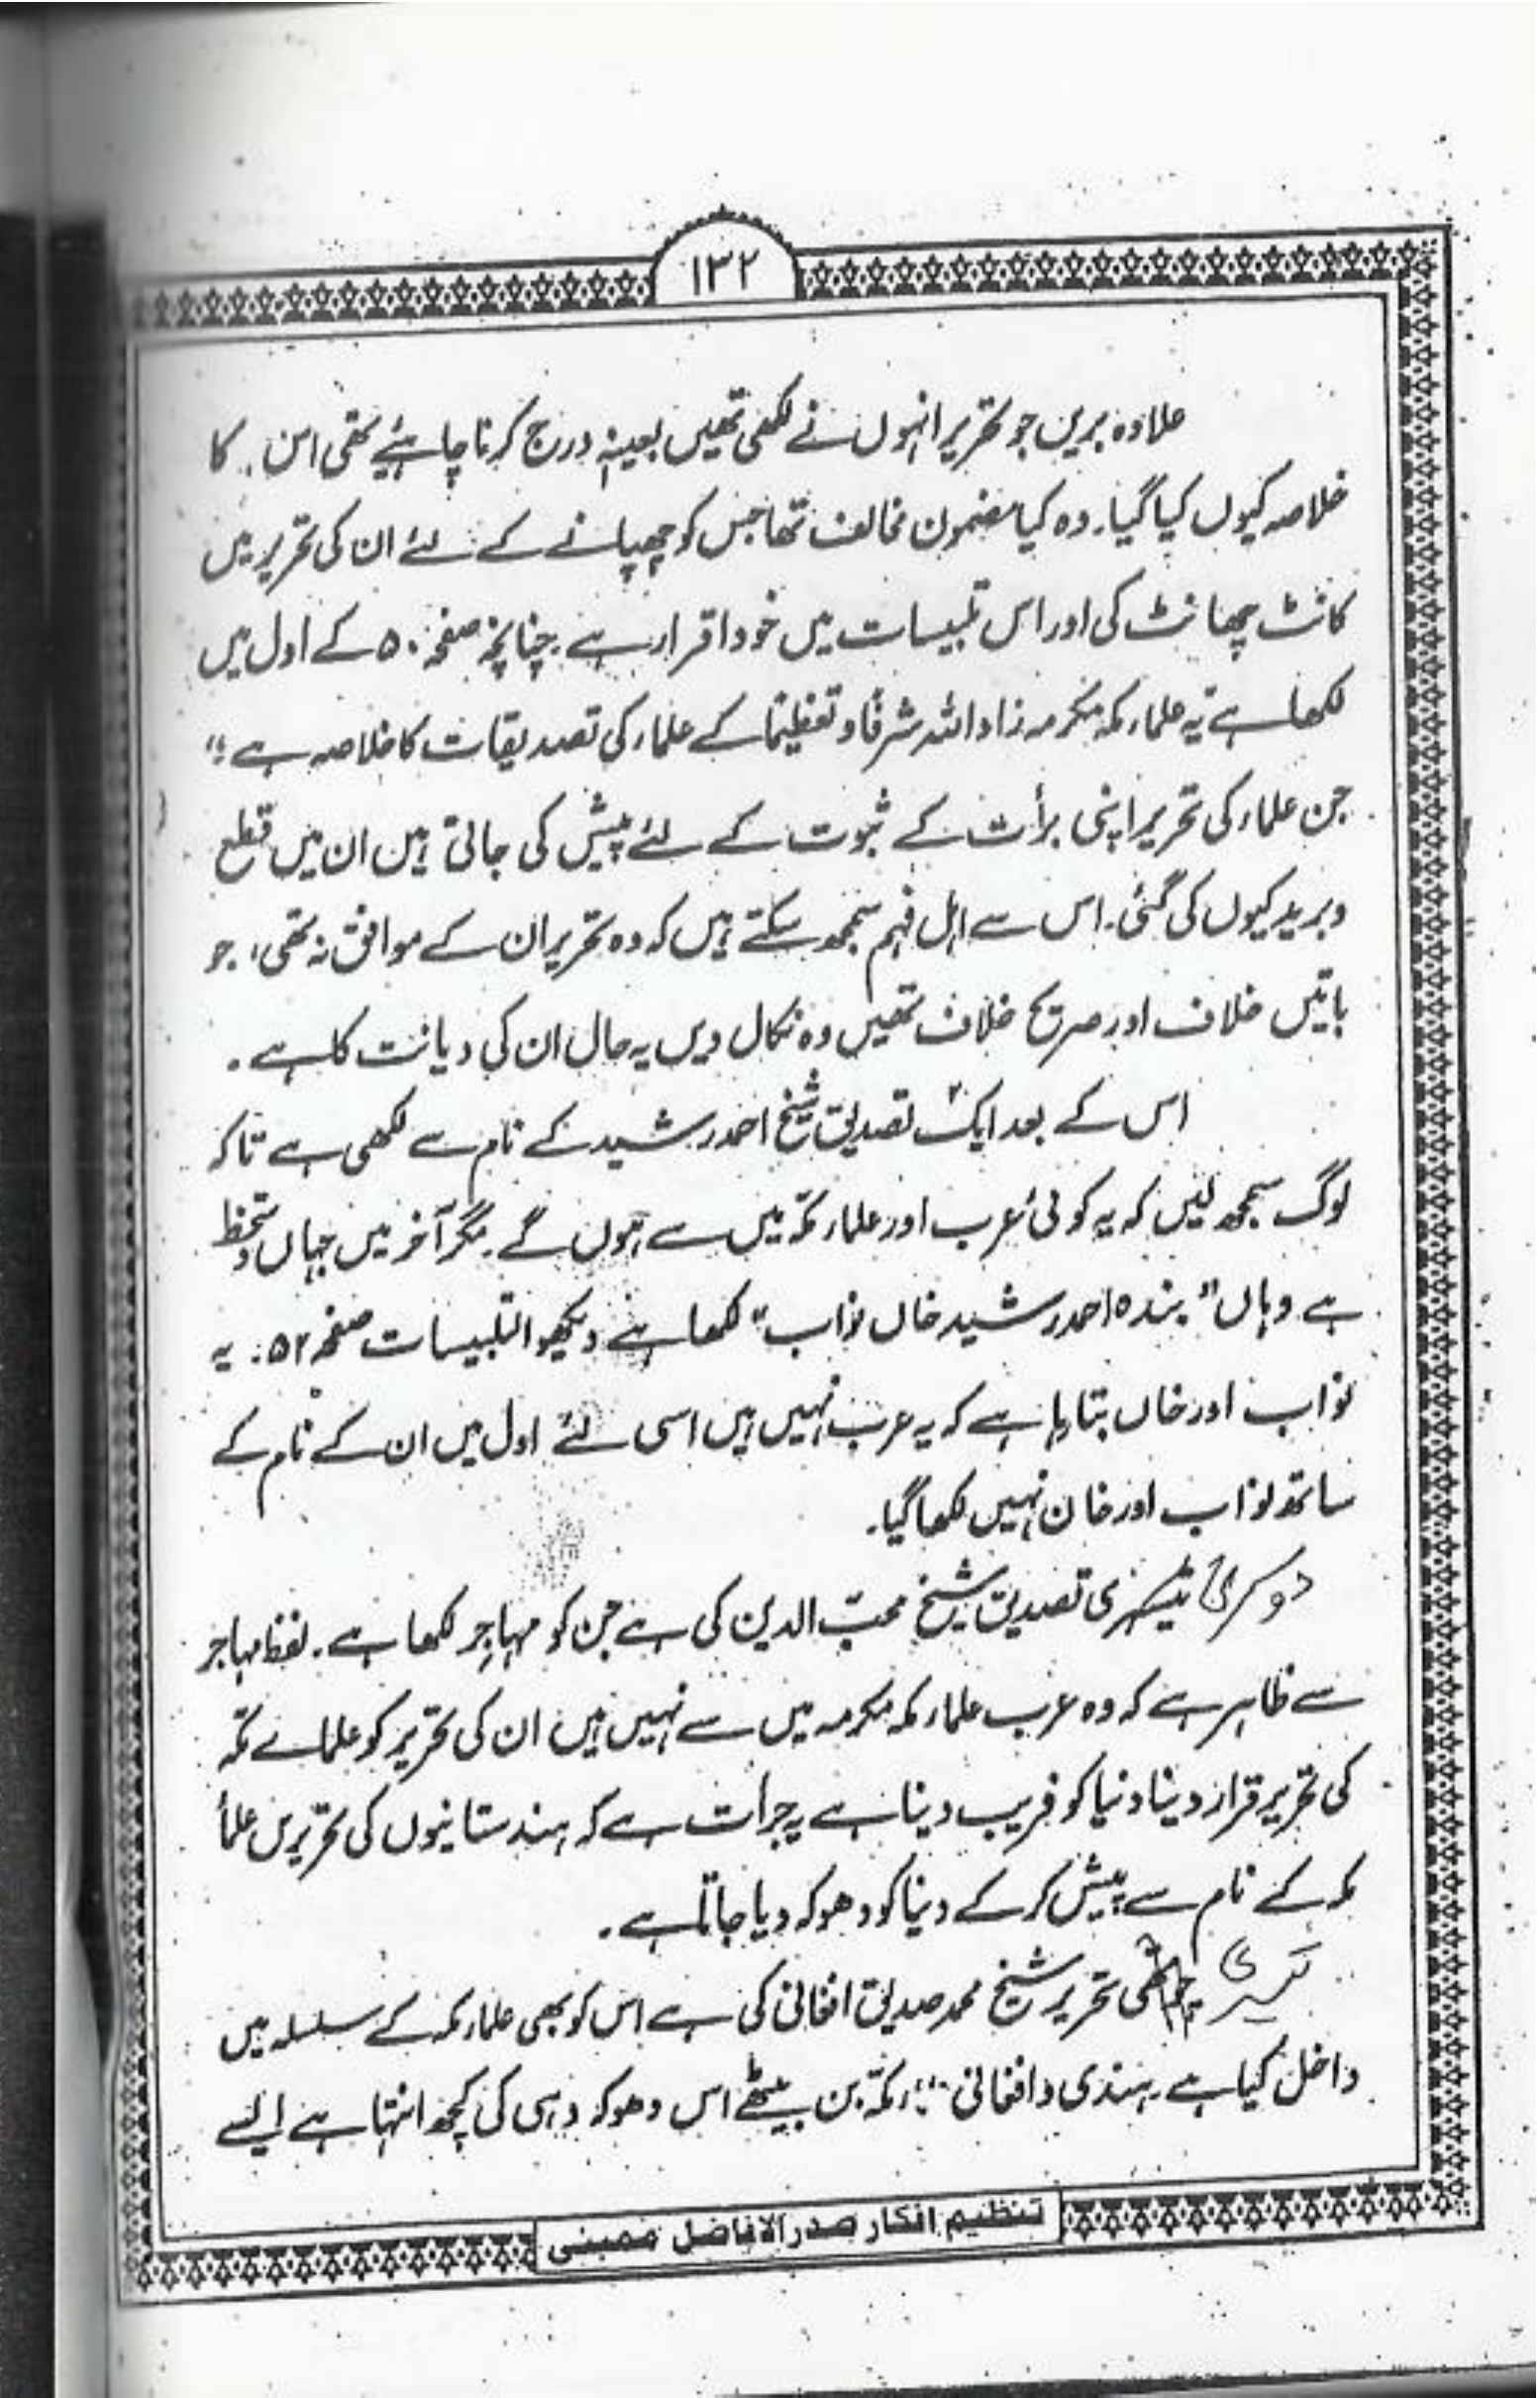 ۱۳۲
علاوہ بریں جو تحریر انہوں نے لکھی تھیں بعینہٖ درج کرنا چاہئیے تھی اس کا
خلاصہ کیوں کیا گیا۔ وہ کیا مضمون مخالف تھا جس کو چھپانے کے لئے ان کی تحریر میں
کانٹ چھانٹ کی اور اس تلبیسات میں خود اقرار ہے چنانچہ صفحہ ۵۰ کے اول میں
لکھا ہے یہ علماء مکہ مکرمہ زاد اللہ شرفا و تعظیما کے علماء کی تصدیقات کا خلاصہ ہے"
جن علماء کی تحریر اپنی برأت کے ثبوت کے لئے پیش کی جاتی ہیں ان میں قطع
و برید کیوں کی گئی۔ اس سے اہل فہم سمجھ سکتے ہیں کہ وہ تحریر ان کے موافق نہ تھی، جو
باتیں خلاف اور صریح خلاف تھیں وہ نکال دیں یہ حال ان کی دیانت کا ہے۔
اس کے بعد ایک تصدیق شیخ احمد رشید کے نام سے لکھی ہے تاکہ
لوگ سمجھ لیں کہ یہ کوئی عرب اور علماء مکہ میں سے ہوں گے۔ مگر آخر میں جہاں دستخط
ہے وہاں "بندہ احمد رشید خاں نواب" لکھا ہے دیکھو التلبیسات صفحہ ۵۲۔ یہ
نواب اور خاں بتا رہا ہے کہ یہ عرب نہیں ہیں اسی لئے اول میں ان کے نام کے
ساتھ نواب اور خان نہیں لکھا گیا۔
دوسری تیسری تصدیق شیخ محبّ الدین کی ہے جن کو مہاجر لکھا ہے۔ لفظ مہاجر
سے ظاہر ہے کہ وہ عرب علماء مکہ مکرمہ میں سے نہیں ہیں ان کی تحریر کو علمائے مکّہ
کی تحریر قرار دینا دنیا کو فریب دینا ہے یہ جرات ہے کہ ہندستانیوں کی تحریریں علمأ
مکہ کے نام سے پیش کر کے دنیا کو دھوکہ دیا جاتا ہے۔
تیسری چوتھی تحریر شیخ محمد صدیق افغانی کی ہے اس کو بھی علماء مکہ کے سلسلہ میں
داخل کیا ہے۔ ہندی و افغانی مکّہ بن بیٹھے اس دھوکہ دہی کی کچھ انتہا ہے ایسے
تنظیم افکار صدر الافاضل ممبئی